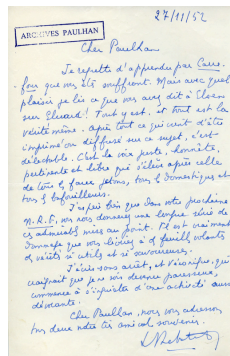 27/11/52
ARCHIVES PAULHAN
Cher Paulhan
Je regrette d'apprendre par
que vous êtes souffrant. Mais avec quel
plaisir je lis ce que vous avez dit à
sur Éluard ! Tout y est, et tout est la
vérité même. Après tout ce qui vient d'être
imprimé ou diffusé sur ce sujet, c'est
délectable. C'est la voix juste, honnête,
pertinente et libre qui s'élève après celle
de tous les faux
J'espère bien que dans votre prochaine
N.R.F. vous nous donnerez une longue série de
ces admirables mises au point. Il est vraiment
dommage que vous livriez à des feuilles volantes
des vérités si utiles et si savoureuses.
J'écris sans arrêt, et Véronique, qui
craignait que je ne devienne paresseux,
commence à s'inquiéter d'une activité aussi
dévorante.
Cher Paulhan, nous vous adressons
tous deux notre très amical souvenir.